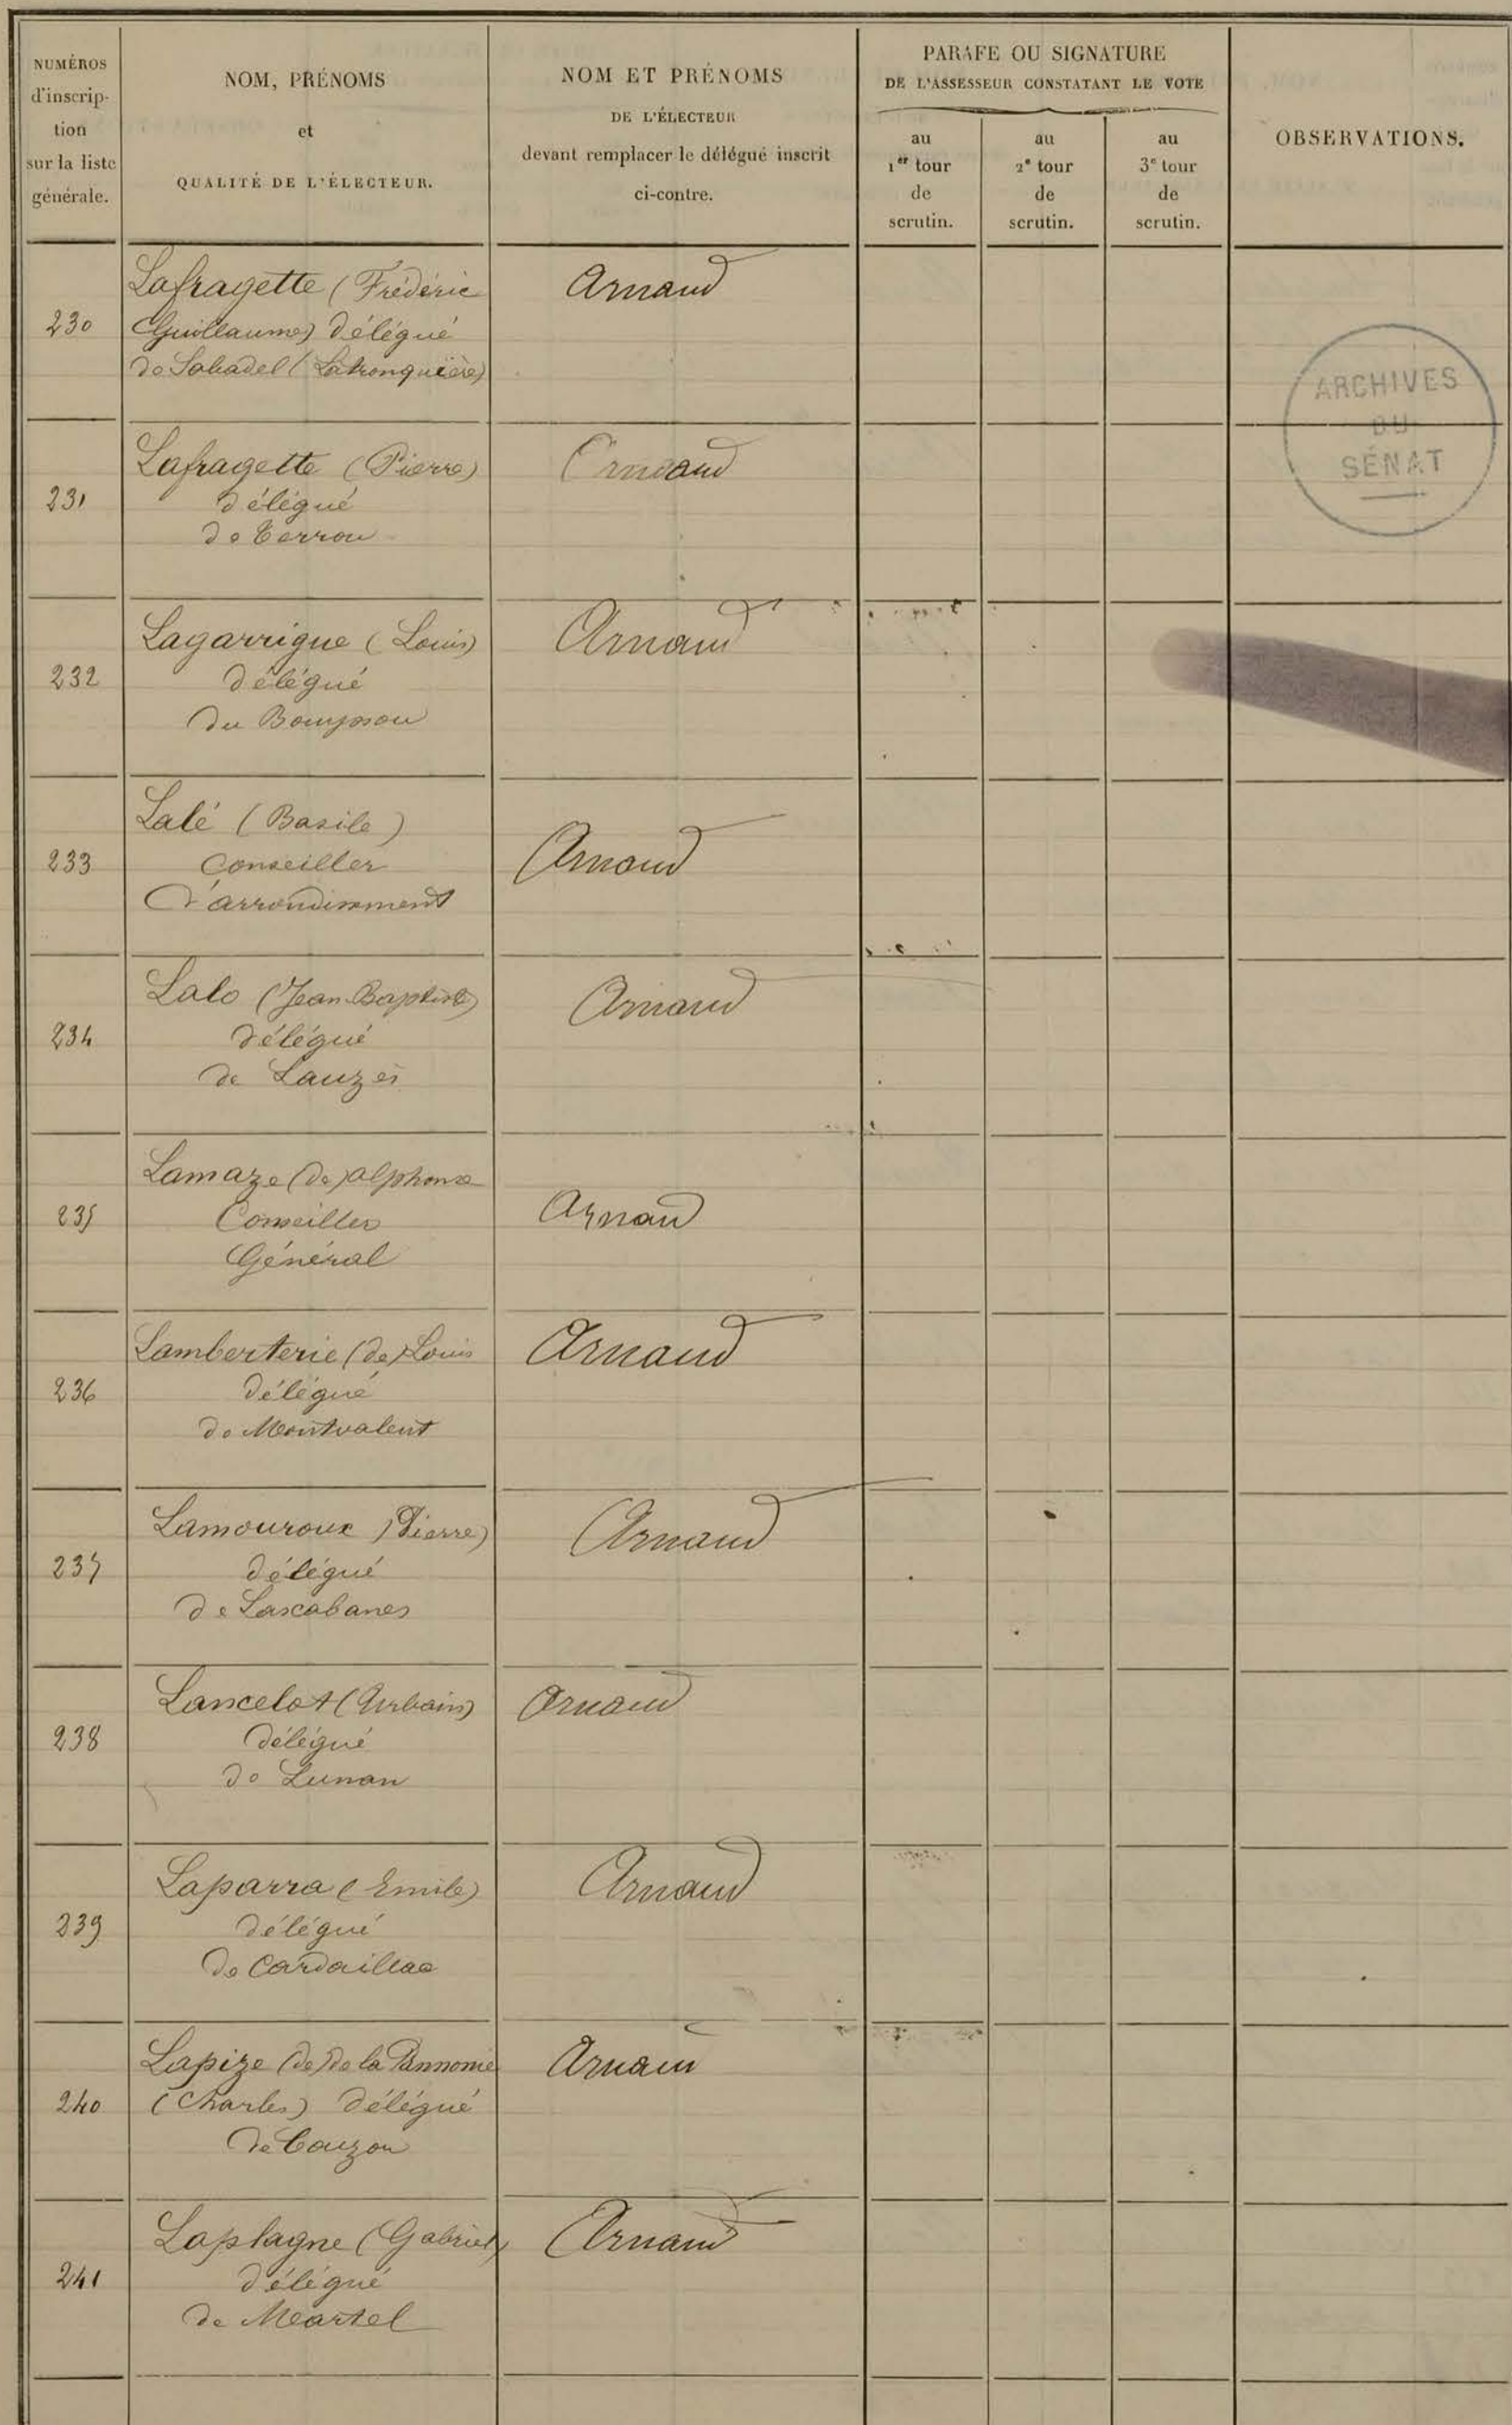 NUMÉROS
d'inscrip-
tion
sur la liste
générale.
NOM, PRÉNOMS
et
QUALITÉ DE L'ÉLECTEUR.
NOM ET PRÉNOMS
DE L'ÉLECTEUR
devant remplacer le délégué inscrit
ci-contre.
PARAFE OU SIGNATURE
DE L'ASSESSEUR CONSTATANT LE VOTE
au
1er tour
de
scrutin.
au
2e tour
de
scrutin.
au
3e tour
de
scrutin.
OBSERVATIONS.
ARCHIVES
DU
SÉNAT
230
Lafragette (Frédéric
Guillaume) délégué
de Sabadel (Latronquière)
Arnaud
231
Lafragette (Pierre)
délégué
de Terrou
Arnaud
232
Lagarrigue (Louis)
délégué
du Bouyssou
Arnaud
233
Lalé (Basile)
Conseiller
d'arrondissement
Arnaud
234
Lalo (Jean-Baptiste)
délégué
de Lauzès
Arnaud
235
Lamaze (de) Alphonse
Conseiller
Général
Arnaud
236
Lamberterie (de) Louis
délégué
de Montvalent
Arnaud
237
Lamouroux (Pierre)
délégué
de Lascabanes
Arnaud
238
Lancelot (Urbain)
délégué
de Lunan
Arnaud
239
Laparra (Emile)
délégué
de Cardaillac
Arnaud
240
Lapize (de) de la Pannonie
(Charles) délégué
de Couzou
Arnaud
241
Laplagne (Gabriel)
délégué
de Martel
Arnaud